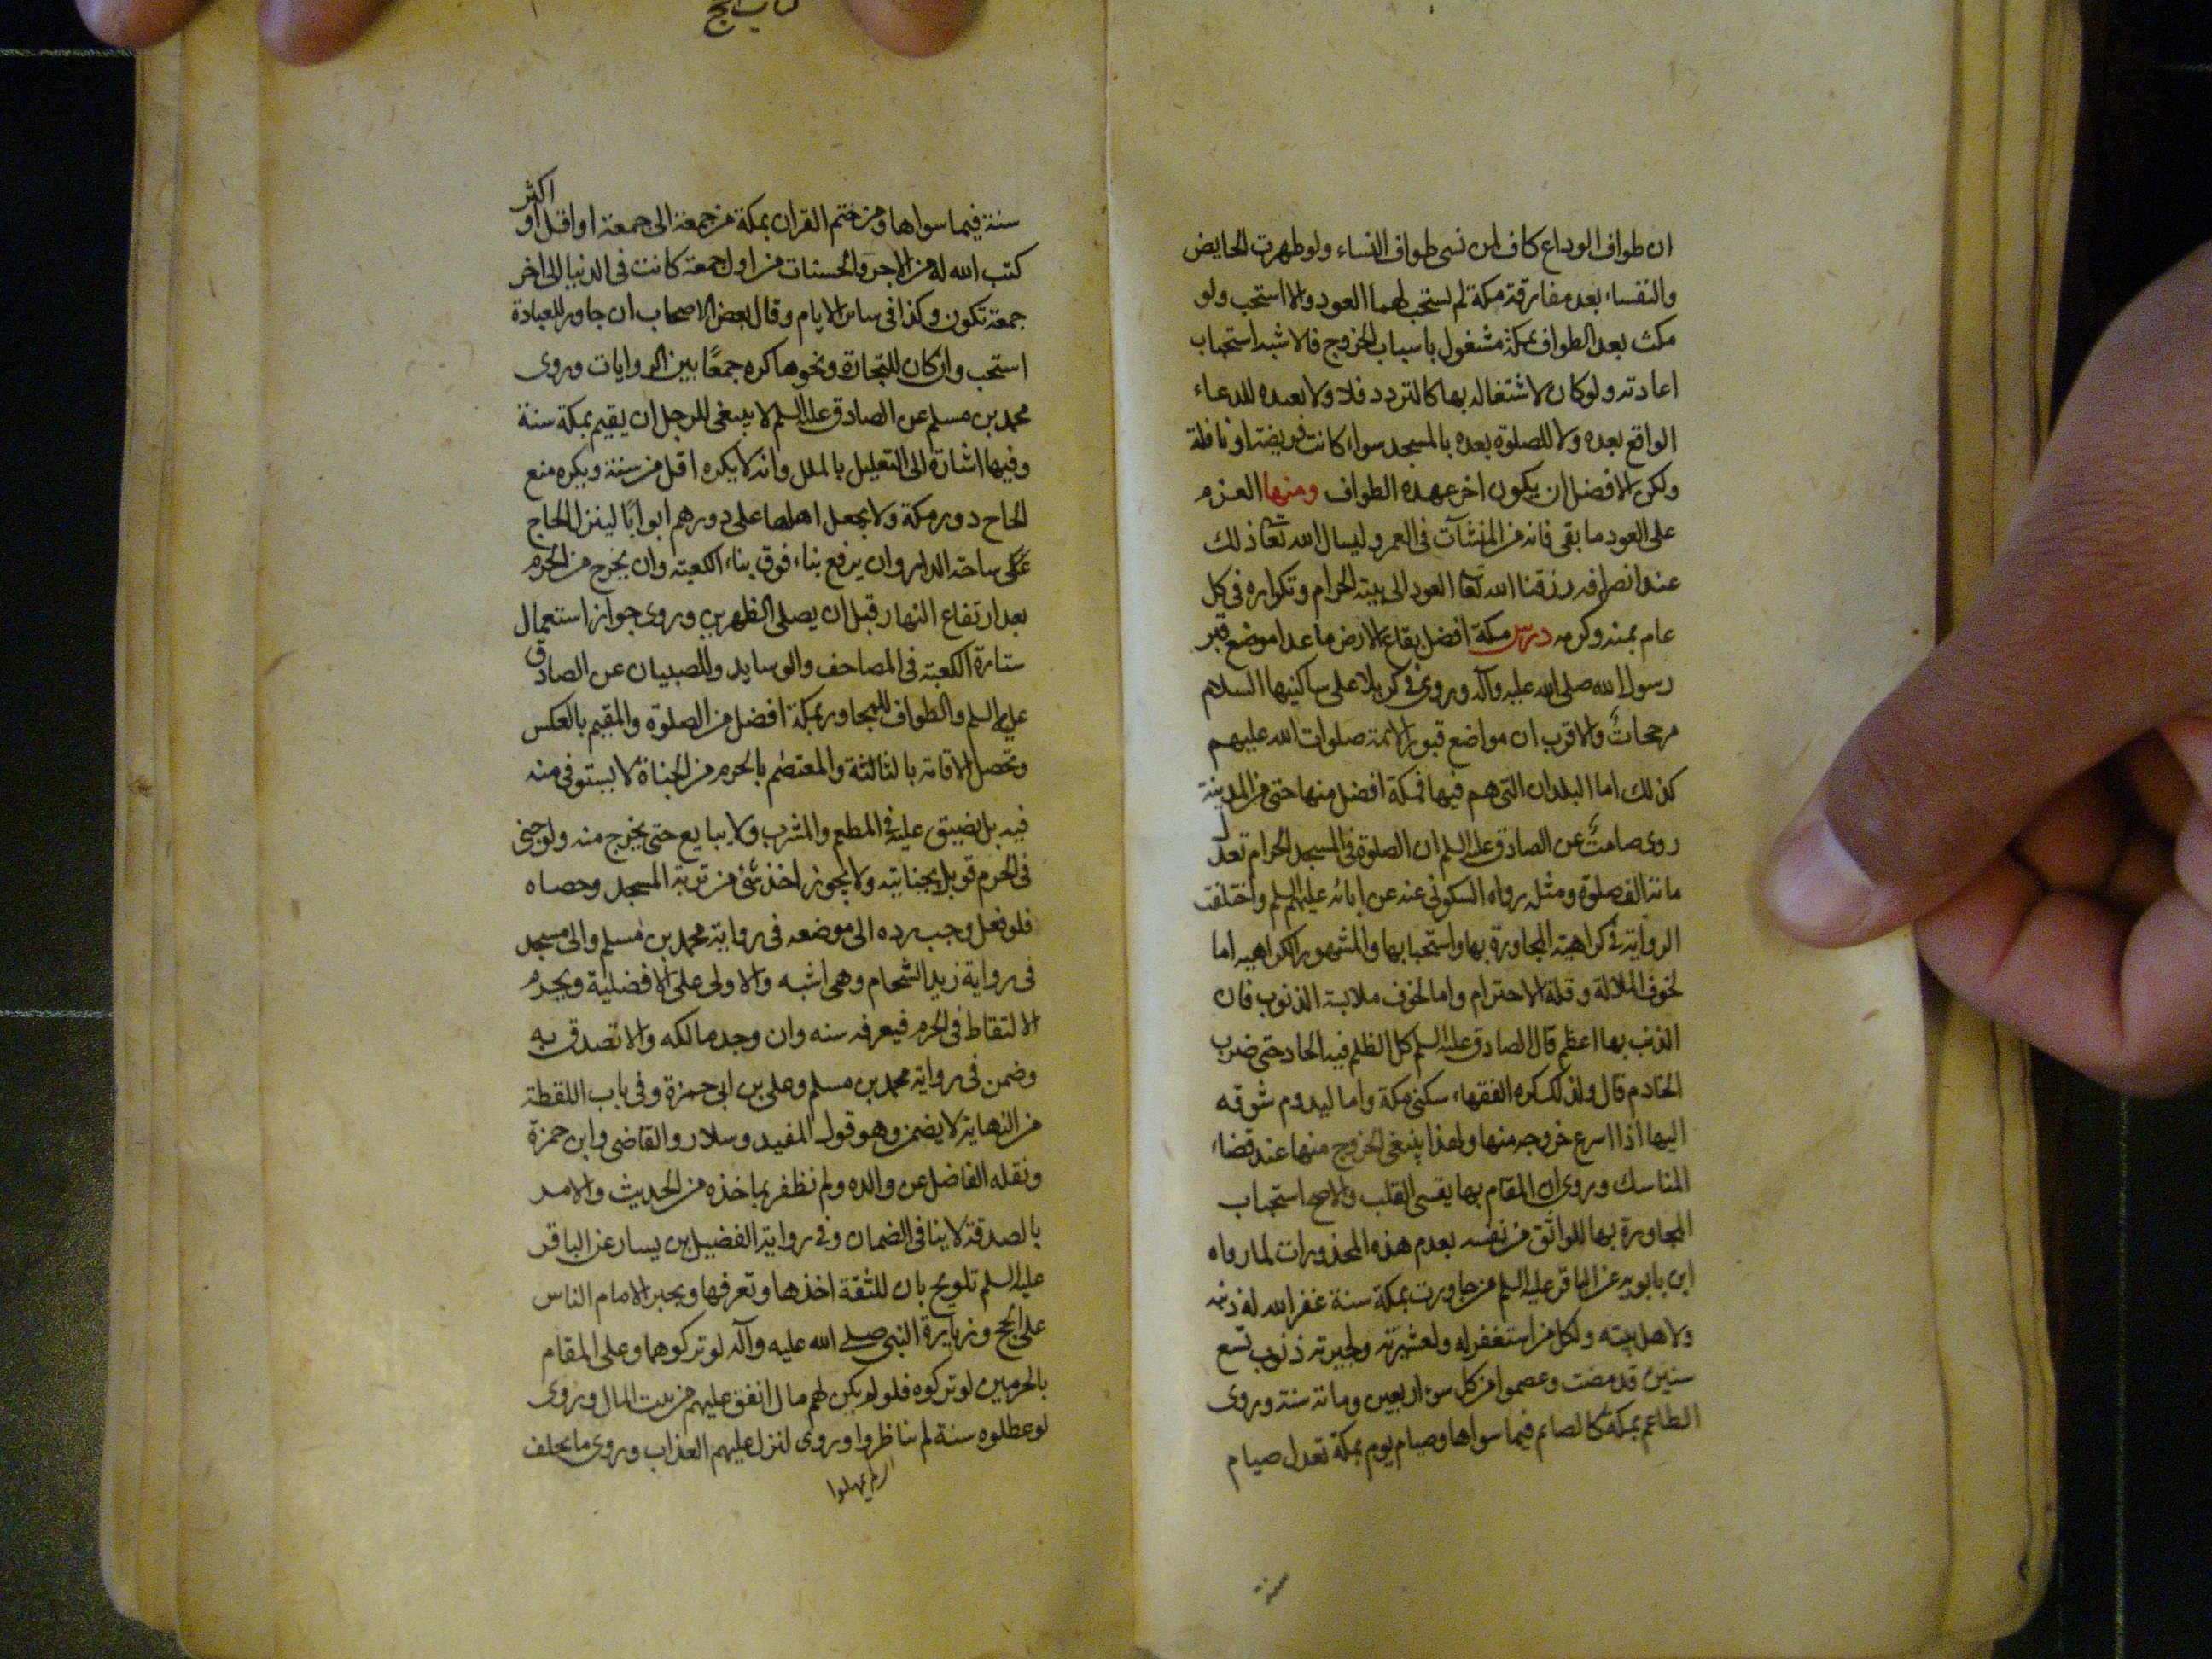 ان طواف الوداع كاف لمن نسى طواف النساء ولو طهرت الحايض
والنفساء بعد مفارقة مكة لم يستحب لهما العود والا استحب ولو
مكث بعد الطواف بمكة مشغول باسباب الخروج فالاشبه استحباب
اعادته ولو كان لاشتغاله بها كالتردد فلا ولا يعيده للدعاء
الواقع بعده ولا للصلوة بعده بالمسجد سواء كانت فريضة او نافلة
ولكن الافضل ان يكون اخر عهده الطواف ومنها العزم
على العود ما بقى فانه من المنسّآت فى العمر وليسال الله تعا ذلك
عند انصرافه رزقنا الله تعا العود الى بيته الحرام وتكراره فى كل
عام بمنه وكرمه درس مكة افضل بقاع الارض ما عدا موضع قبر
رسول الله صلى الله عليه وآله وروى فى كربلا على ساكنيها السلام
مرجحات والاقرب ان مواضع قبور الائمة صلوات الله عليهم
كذلك اما البلدان التى هم فيها فمكة افضل منها حتى من المدينة
روى صامت عن الصادق عليه السلم ان الصلوة فى المسجد الحرام تعدل
مائة الف صلوة ومثله رواه السكونى عنه عن ابائه عليهم السلم واختلفت
الرواية فى كراهية المجاورة بها واستحبابها والمشهور الكراهيه اما
لخوف الملالة وقلة الاحترام واما لخوف ملابسة الذنوب فان
الذنب بها اعظم قال الصادق عليه السلم كل الظلم فيه الحاد حتى ضرب
الخادم قال ولذلك كره الفقهاء سكنى مكة واما ليدوم شوقه
اليها اذا اسرع خروجه منها ولهذا ينبغى الخروج منها عند قضاء
المناسك وروى ان المقام بها يقسى القلب والاصح استحباب
المجاورة بها للواثق من نفسه بعدم هذه المحذورات لما رواه
ابن بابويه عن الباقر عليه السلم من جاور بمكة سنة غفر الله له ذنبه
ولاهل بيته ولكل من استغفر له ولعشيرته ولجيرته ذنوب تسع
سنين قد مضت وعصموا من كل سوء اربعين ومائة سنة وروى
الطاعم بمكة كالصائم فيما سواها وصيام يوم بمكة تعدل صيام
سنة
كتاب الحج
سنة فيما سواها ومن ختم القران بمكة من جمعة الى جمعة او اقل او اكثر
كتب الله له من الاجر والحسنات من اول جمعة كانت فى الدنيا الى اخر
جمعة تكون وكذا فى سائر الايام وقال بعض الاصحاب ان جاور للعبادة
استحب وان كان للتجارة ونحوها كره جمعًا بين الروايات وروى
محمد بن مسلم عن الصادق عليه السلم لا ينبغى للرجل ان يقيم بمكة سنة
وفيها اشارة الى التعليل بالملل وانه لا يكره اقل من سنة ويكره منع
الحاج دور مكة ولا يجعل اهلها على دورهم ابوابًا لينزل الحاج
على ساحة الدار وان يرفع بناء فوق بناء الكعبة وان يخرج من الحرم
بعد ارتفاع النهار قبل ان يصلى الظهرين وروى جواز استعمال
ستارة الكعبة فى المصاحف والوسايد وللصبيان عن الصادق
عليه السلم والطواف للمجاور بمكة افضل من الصلوة والمقيم بالعكس
وتحصل الاقامة بالثالثة والمعتصم بالحرم من الجناة لا يستوفى منه
فيه بل يضيق عليه فى المطعم والمشرب ولا يبايع حتى يخرج منه ولو جنى
فى الحرم قوبل بجنايته ولا يجوز اخذ شئ من تربة المسجد وحصاه
فلو فعل وجب رده الى موضعه فى رواية محمد بن مسلم والى مسجد
فى رواية زيد الشحام وهى اشبه والاولى على الافضلية ويحرم
الالتقاط فى الحرم فيعرفه سنه وان وجد مالكه والا تصدق به
وضمن فى رواية محمد بن مسلم وعلى بن ابى حمزة وفى باب اللقطة
من النهاية لا يضمن وهو قول المفيد وسلار والقاضى وابن حمزة
ونقله الفاضل عن والده ولم نظفر بماخذه من الحديث والامر
بالصدقة لا ينافى الضمان وفى رواية الفضيل بن يسار عن الباقر
عليه السلم تلويح بان للثقة اخذها وتعرفها ويجبر الامام الناس
على الحج وزيارة النبى صلى الله عليه وآله لو تركوهما وعلى المقام
بالحرمين لو تركوه فلو لم يكن لهم مال انفق عليهم من بيت المال وروى
لو عطلوه سنة لم يناظروا وروى لنزل عليهم العذاب وروى ما يخلف
اى لم يمهلوا